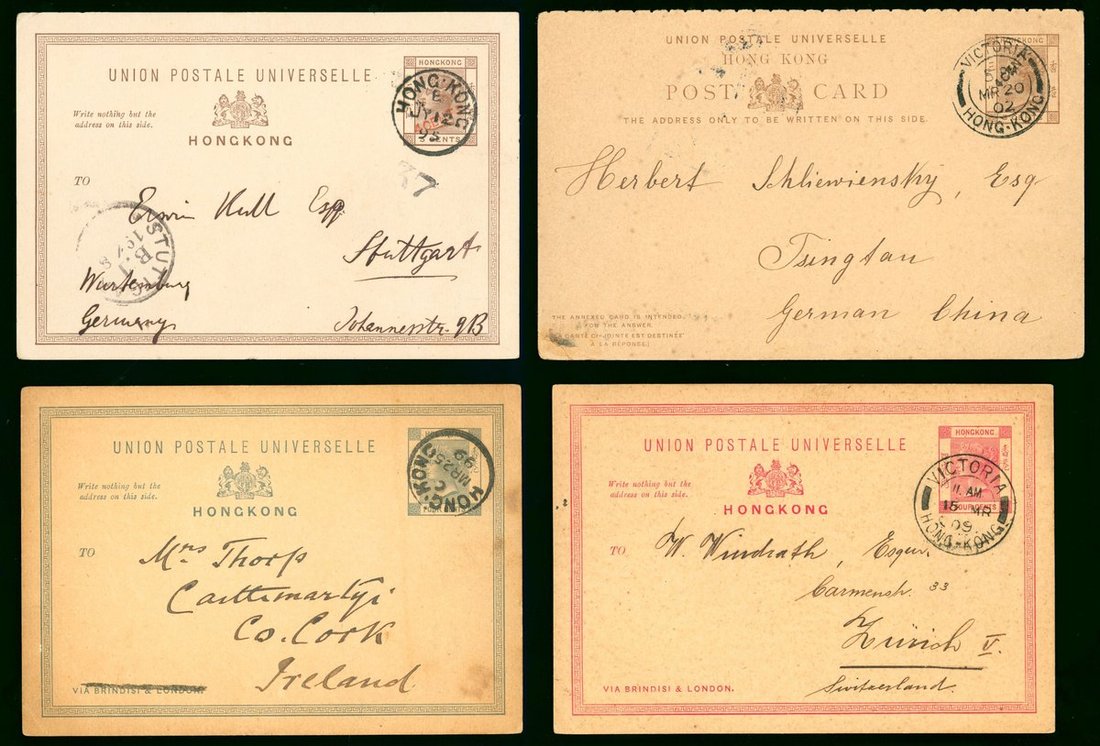 UNION POSTALE UNIVERSELLE
HONGKONG
Write nothing but the
address on this side.
HONGKONG
TO
HONG-KONG
E
JY 12
95
CENTS
37
Erwin Kull Esq
Stuttgart
STUTTG
Wurtemburg
Germany
Johannestr. 9B
UNION POSTALE UNIVERSELLE
HONG KONG
POST CARD
THE ADDRESS ONLY TO BE WRITTEN ON THIS SIDE.
VICTORIA
MR 20
02
HONG-KONG
Herbert Schliewiensky, Esq
Tsingtau
German China
THE ANNEXED CARD IS INTENDED
FOR THE ANSWER.
LA CARTE CI-JOINTE EST DESTINÉE
À LA RÉPONSE.
UNION POSTALE UNIVERSELLE
Write nothing but the
address on this side.
HONGKONG
TO
HONG-KONG
C
MR 25
99
Mrs Thorp
Co. Cork
Ireland
VIA BRINDISI & LONDON.
UNION POSTALE UNIVERSELLE
HONGKONG
Write nothing but the
address on this side.
HONGKONG
FOUR CENTS
VICTORIA
11 AM
15 MR
09
HONG-KONG
TO
W. Windrath, Esqu
33
Zürich V.
Switzerland.
VIA BRINDISI & LONDON.